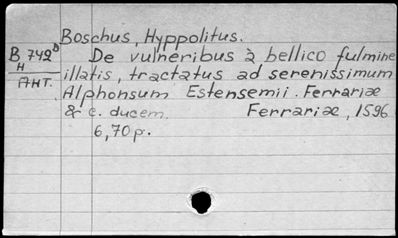 Boschus, Hyppolitus.
B 742b De vulneribus à bellico fulmine
H illatis, tractatus ad serenissimum
ANT. Alphonsum Estensemii. Ferrariæ
& c. ducem. Ferrariæ, 1596
6,70p.